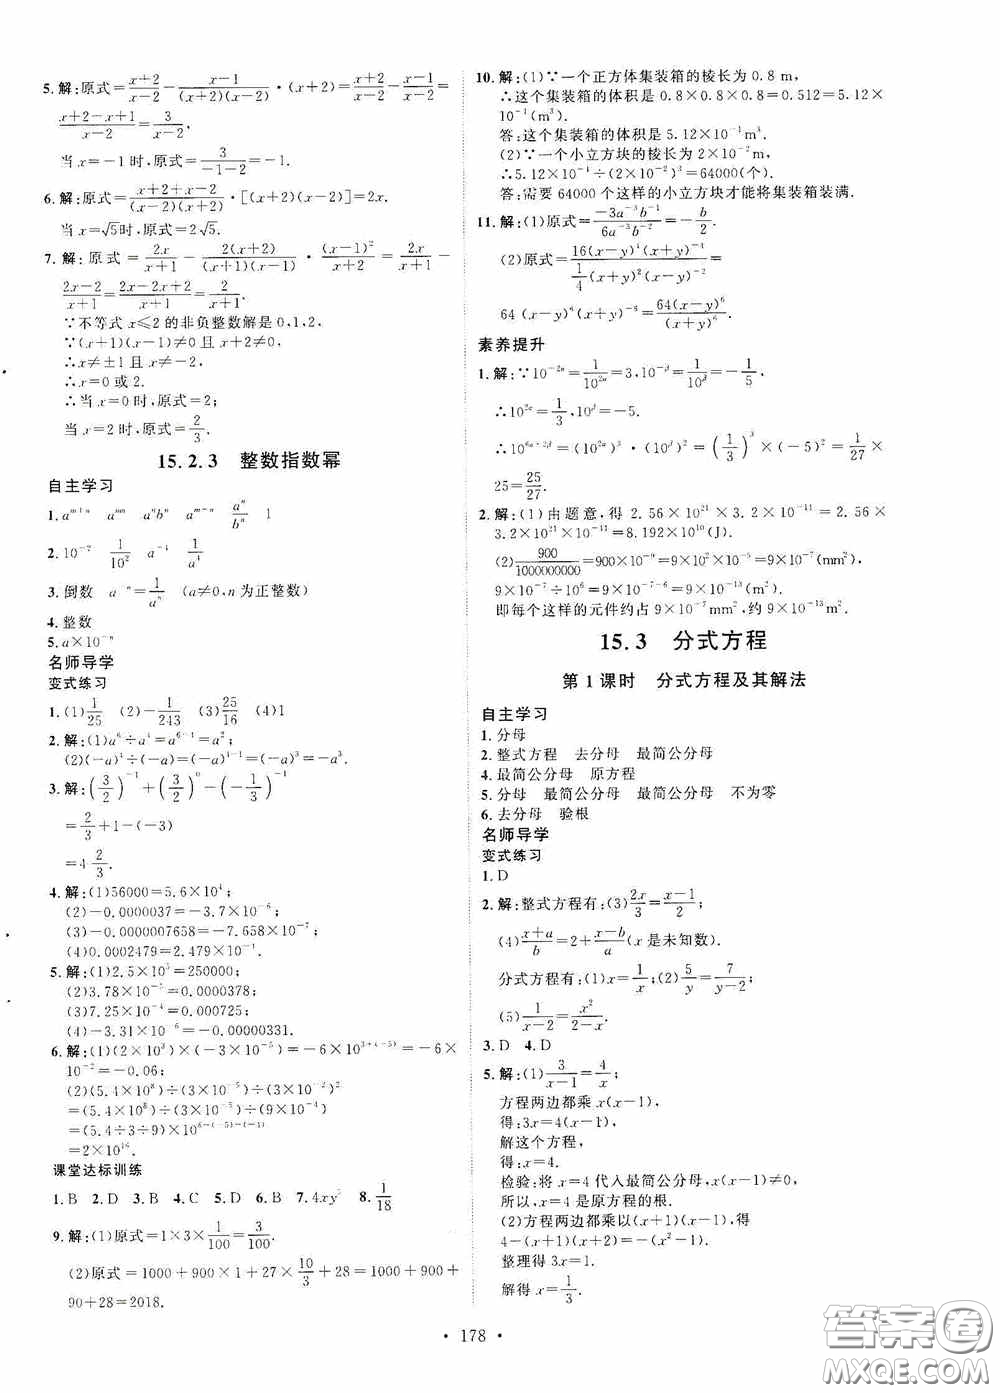 5.解:原式=\frac{x+2}{x-2}-\frac{x-1}{(x+2)(x-2)}·(x+2)=\frac{x+2}{x-2}-\frac{x-1}{x-2}=
\frac{x+2-x+1}{x-2}=\frac{3}{x-2}.
当x=-1时,原式=\frac{3}{-1-2}=-1.
6.解:原式=\frac{x+2+x-2}{(x-2)(x+2)}·[(x+2)(x-2)]=2x.
当x=√5时,原式=2√5.
7.解:原式=\frac{2x}{x+1}-\frac{2(x+2)}{(x+1)(x-1)}·\frac{(x-1)^2}{x+2}=\frac{2x}{x+1}-
\frac{2x-2}{x+1}=\frac{2x-2x+2}{x+1}=\frac{2}{x+1}.
∵不等式x≤2的非负整数解是0,1,2,
∵(x+1)(x-1)≠0且x+2≠0,
∴x≠±1且x≠-2,
∴x=0或2.
∴当x=0时,原式=2;
当x=2时,原式=\frac{2}{3}.
15.2.3 整数指数幂
自主学习
1.a^{m+n} a^{mn} a^n b^n a^{m-n} \frac{a^n}{b^n} 1
2.10^{-7} \frac{1}{10^2} a^{-4} \frac{1}{a^4}
3.倒数 a^{-n}=\frac{1}{a^n} (a≠0,n为正整数)
4.整数
5.a×10^{-n}
名师导学
变式练习
1.(1)\frac{1}{25} (2)-\frac{1}{243} (3)\frac{25}{16} (4)1
2.解:(1)a^6÷a^4=a^{6-4}=a^2;
(2)(-a)^4÷(-a)=(-a)^{4-1}=(-a)^3=-a^3.
3.解:(\frac{3}{2})^{-1}+(\frac{3}{2})^0-(-\frac{1}{3})^{-1}
=\frac{2}{3}+1-(-3)
=4\frac{2}{3}.
4.解:(1)56000=5.6×10^4;
(2)-0.0000037=-3.7×10^{-6};
(3)-0.0000007658=-7.658×10^{-7};
(4)0.0002479=2.479×10^{-4}.
5.解:(1)2.5×10^5=250000;
(2)3.78×10^{-5}=0.0000378;
(3)7.25×10^{-4}=0.000725;
(4)-3.31×10^{-6}=-0.00000331.
6.解:(1)(2×10^3)×(-3×10^{-5})=-6×10^{3+(-5)}=-6×
10^{-2}=-0.06;
(2)(5.4×10^8)÷(3×10^{-5})÷(3×10^{-2})^2
=(5.4×10^8)÷(3×10^{-5})÷(9×10^{-4})
=(5.4÷3÷9)×10^{8-(-5)-(-4)}
=2×10^{16}.
课堂达标训练
1.B 2.D 3.B 4.C 5.D 6.B 7.4xy^2 8.\frac{1}{18}
9.解:(1)原式=1×3×\frac{1}{100}=\frac{3}{100}.
(2)原式=1000+900×1+27×\frac{10}{3}+28=1000+900+
90+28=2018.
10.解:(1)∵一个正方体集装箱的棱长为0.8 m,
∴这个集装箱的体积是0.8×0.8×0.8=0.512=5.12×
10^{-1}(m^3).
答:这个集装箱的体积是5.12×10^{-1}m^3.
(2)∵一个小立方块的棱长为2×10^{-2}m,
∴5.12×10^{-1}÷(2×10^{-2})^3=64000(个).
答:需要64000个这样的小立方块才能将集装箱装满.
11.解:(1)原式=\frac{-3a^{-3}b^{-1}}{6a^{-3}b^{-2}}=-\frac{b}{2}.
(2)原式=\frac{16(x-y)^4(x+y)^{-4}}{\frac{1}{4}(x+y)^2(x-y)^{-2}}=
64(x-y)^6(x+y)^{-6}=\frac{64(x-y)^6}{(x+y)^6}.
素养提升
1.解:∵10^{-2α}=\frac{1}{10^{2α}}=3,10^{-β}=\frac{1}{10^β}=-\frac{1}{5},
∴10^{2α}=\frac{1}{3},10^β=-5.
∴10^{6α+2β}=(10^{2α})^3·(10^β)^2=(\frac{1}{3})^3×(-5)^2=\frac{1}{27}×
25=\frac{25}{27}.
2.解:(1)由题意,得2.56×10^{21}×3.2×10^{-11}=2.56×
3.2×10^{21}×10^{-11}=8.192×10^{10}(J).
(2)\frac{900}{1000000000}=900×10^{-9}=9×10^2×10^{-9}=9×10^{-7}(mm^2);
9×10^{-7}÷10^6=9×10^{-7-6}=9×10^{-13}(m^2).
即每个这样的元件约占9×10^{-7}mm^2,约9×10^{-13}m^2.
15.3 分式方程
第1课时 分式方程及其解法
自主学习
1.分母
2.整式方程 去分母 最简公分母
4.最简公分母 原方程
5.分母 最简公分母 最简公分母 不为零
6.去分母 验根
名师导学
变式练习
1.D
2.解:整式方程有:(3)\frac{2x}{3}=\frac{x-1}{2};
(4)\frac{x+a}{b}=2+\frac{x-b}{a}(x是未知数).
分式方程有:(1)x=\frac{1}{x};(2)\frac{5}{y}=\frac{7}{y-2};
(5)\frac{1}{x-2}=\frac{x^2}{2-x}.
3.D 4.D
5.解:(1)\frac{3}{x-1}=\frac{4}{x};
方程两边都乘x(x-1),
得:3x=4(x-1),
解这个方程,
得:x=4.
检验:将x=4代入最简公分母,x(x-1)≠0,
所以,x=4是原方程的根.
(2)方程两边都乘以(x+1)(x-1),得
4-(x+1)(x+2)=-(x^2-1).
整理得3x=1.
解得x=\frac{1}{3}.
· 178 ·
答案圈
MXQE.COM